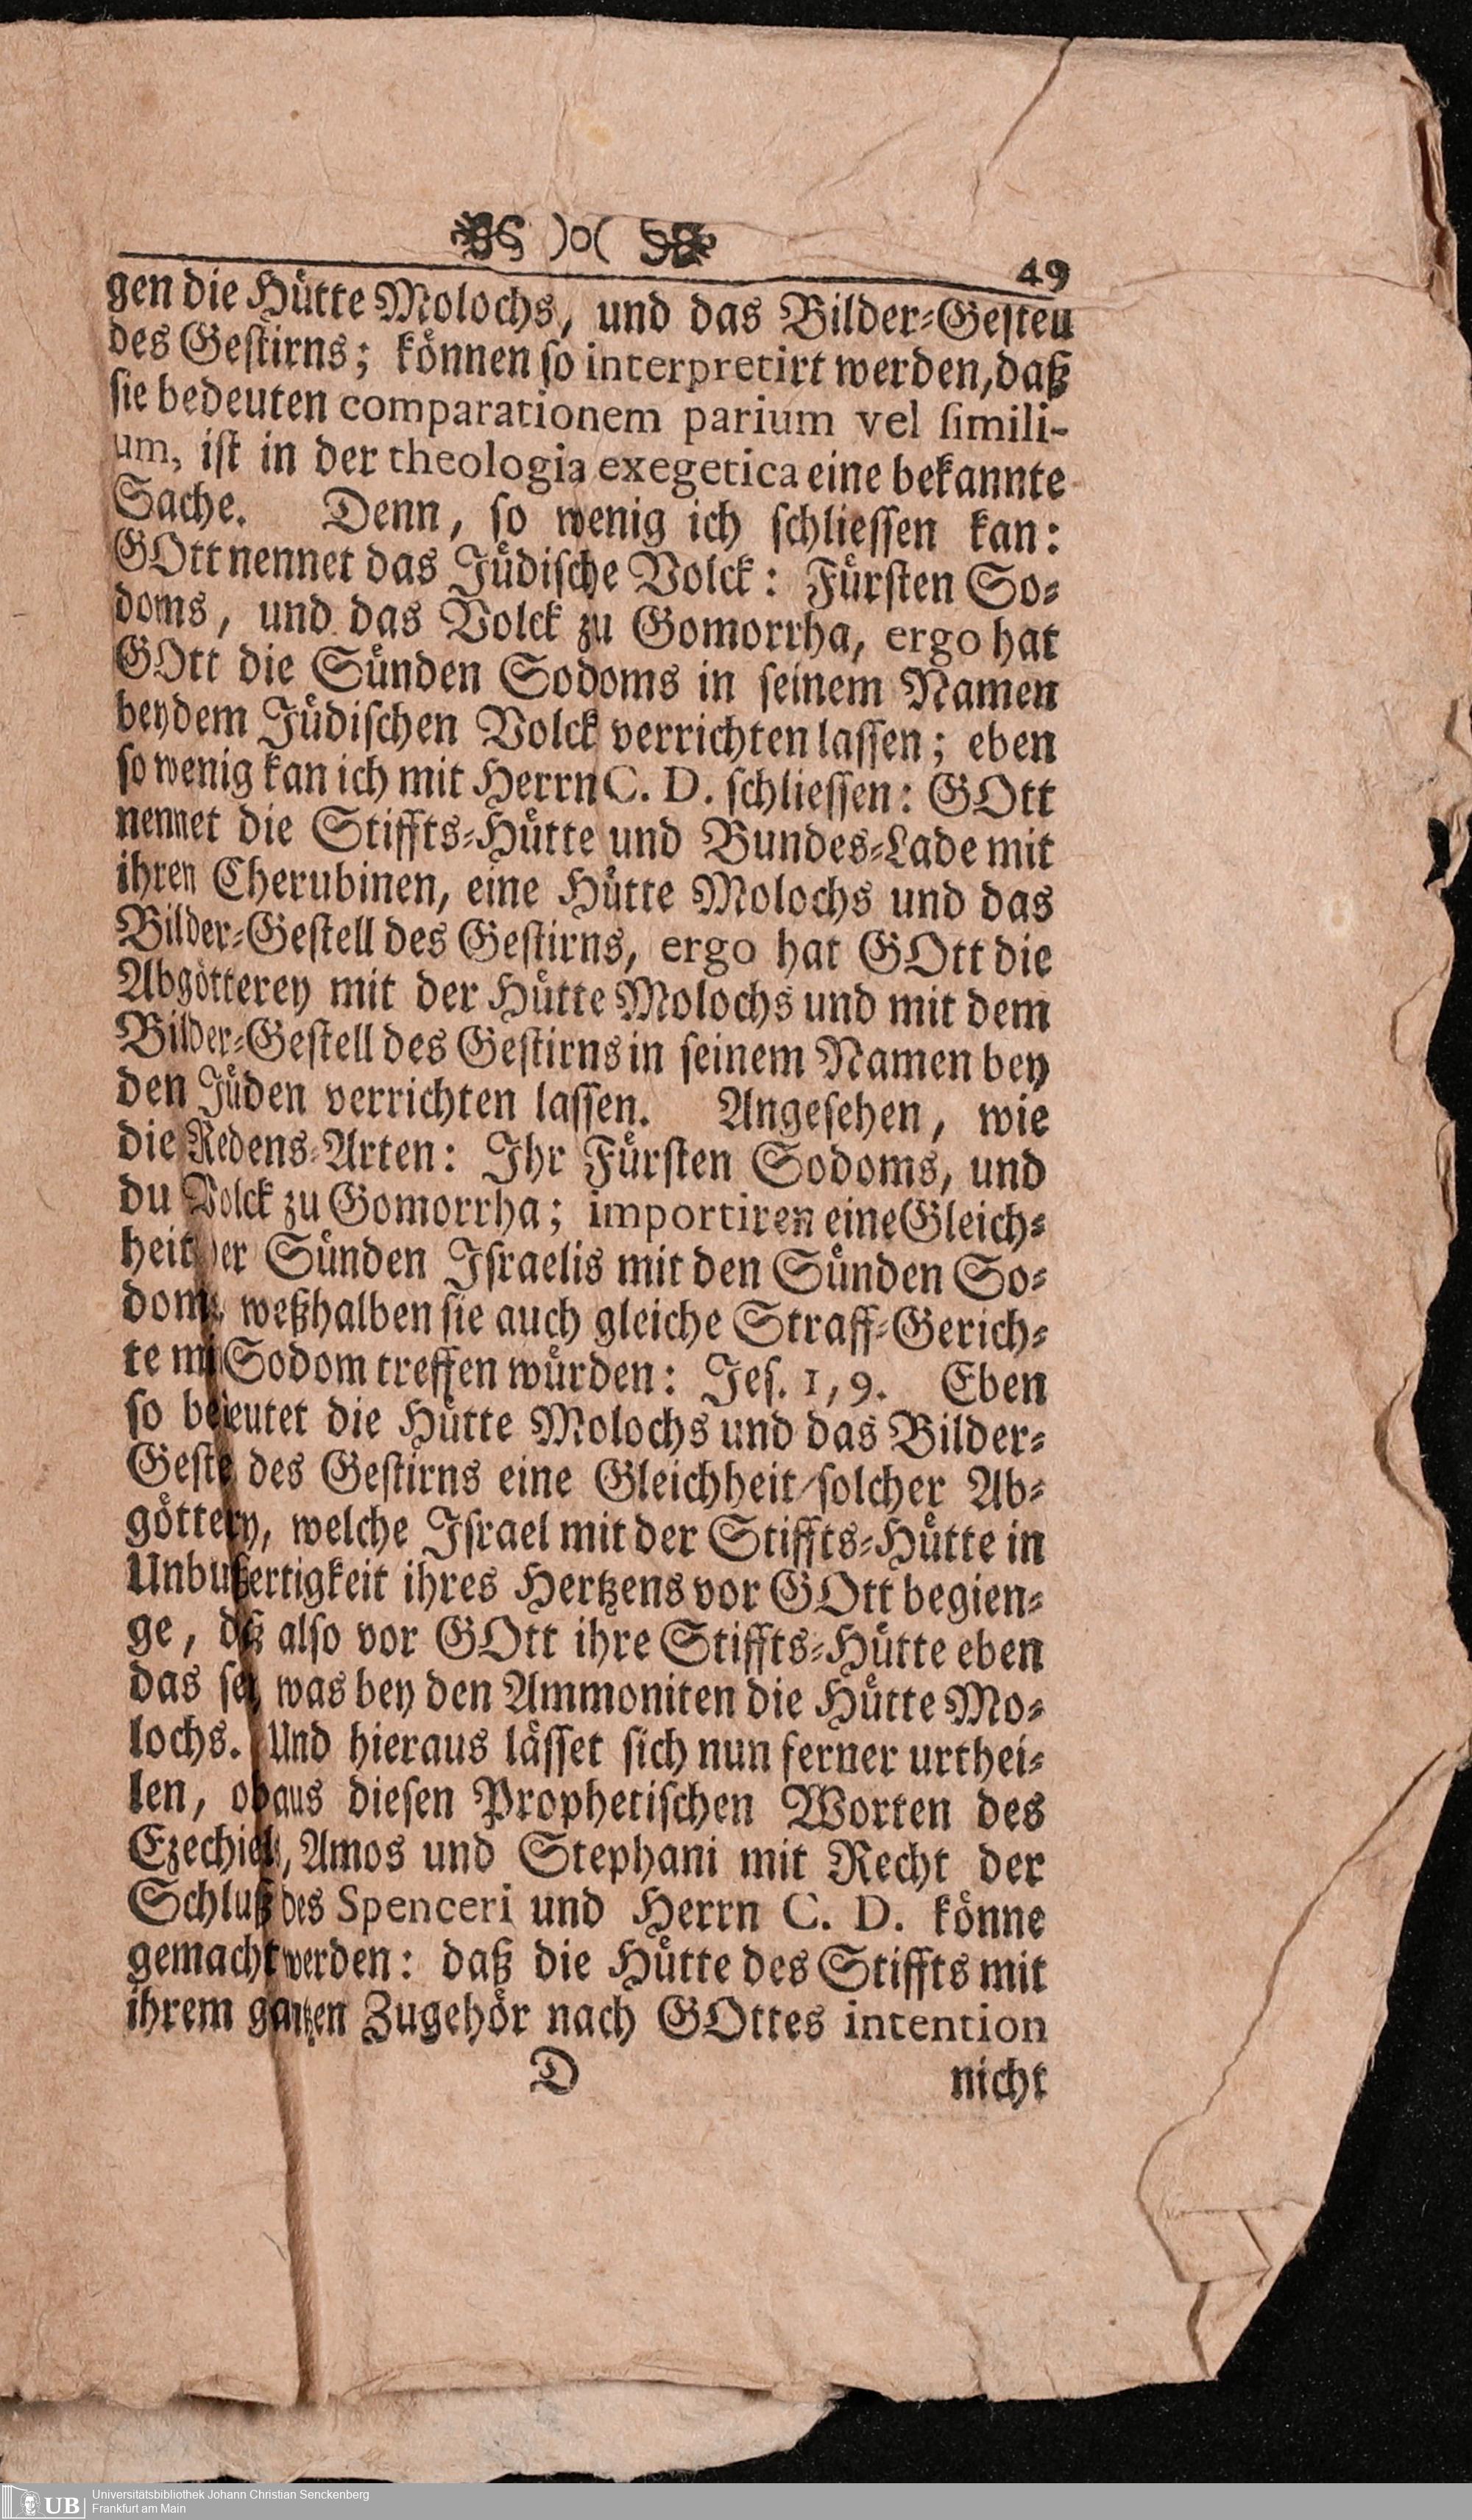 )o(
49
gen die Hütte Molochs, und das Bilder-Gestell
des Gestirns; können so interpretirt werden, daß
sie bedeuten comparationem parium vel simili-
um, ist in der theologia exegetica eine bekannte
Sache. Denn, so wenig ich schliessen kan:
GOtt nennet das Jüdische Volck: Fürsten So-
doms, und das Volck zu Gomorrha, ergo hat
GOtt die Sünden Sodoms in seinem Namen
bey dem Jüdischen Volck verrichten lassen; eben
so wenig kan ich mit Herrn C. D. schliessen: GOtt
nennet die Stiffts-Hütte und Bundes-Lade mit
ihren Cherubinen, eine Hütte Molochs und das
Bilder-Gestell des Gestirns, ergo hat GOtt die
Abgötterey mit der Hütte Molochs und mit dem
Bilder-Gestell des Gestirns in seinem Namen bey
den Jüden verrichten lassen. Angesehen, wie
die Redens-Arten: Ihr Fürsten Sodoms, und
du Volck zu Gomorrha; importiren eine Gleich-
heit der Sünden Israelis mit den Sünden So-
doms, weßhalben sie auch gleiche Straff-Gerich-
te mit Sodom treffen würden: Jes. 1, 9. Eben
so bedeutet die Hütte Molochs und das Bilder-
Gestell des Gestirns eine Gleichheit solcher Ab-
götterey, welche Israel mit der Stiffts-Hütte in
Unbußfertigkeit ihres Hertzens vor GOtt begien-
ge, daß also vor GOtt ihre Stiffts-Hütte eben
das sey, was bey den Ammoniten die Hütte Mo-
lochs. Und hieraus lässet sich nun ferner urthei-
len, ob aus diesen Prophetischen Worten des
Ezechiels, Amos und Stephani mit Recht der
Schluß des Spenceri und Herrn C. D. könne
gemacht werden: daß die Hütte des Stiffts mit
ihrem gantzen Zugehör nach GOttes intention
D nicht
UB Universitätsbibliothek Johann Christian Senckenberg
Frankfurt am Main